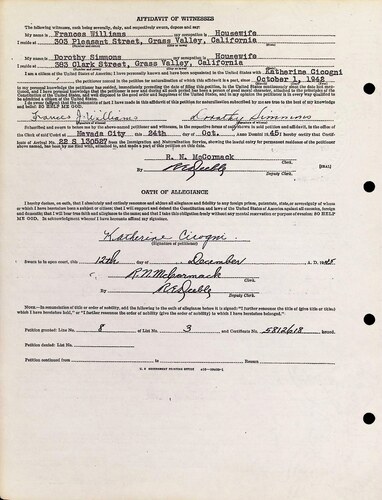 AFFIDAVIT OF WITNESSES
The following witnesses, each being severally, duly, and respectively sworn, depose and say:
My name is Frances Williams my occupation is Housewife
I reside at 303 Pleasant Street, Grass Valley, California
My name is Dorothy Simmons my occupation is Housewife
I reside at 383 Clark Street, Grass Valley, California
I am a citizen of the United States of America; I have personally known and have been acquainted in the United States with Katherine Cicogni
, the petitioner named in the petition for naturalization of which this affidavit is a part, since October 1, 1942
to my personal knowledge the petitioner has resided, immediately preceding the date of filing this petition, in the United States continuously
and at
the Constitution of the United States, and well disposed to the good order and happiness of the United States, and in my opinion the petitioner is in every way qualified to
be admitted a citizen of the United States.
I do swear (affirm) that the statements of fact I have made in this affidavit of this petition for naturalization subscribed by me are true to the best of my knowledge
and belief: SO HELP ME GOD.
Frances J. Williams Dorothy Simmons
(Signature of witness) (Signature of witness)
Subscribed and sworn to before me by the above-named petitioner and witnesses, in the respective forms of oath shown in said petition and affidavit, in the office of
the Clerk of said Court at Nevada City this 24th day of Oct. Anno Domini
above named, has been received by me, and is made a part of this petition on this date.
R. N. McCormack
Clerk.
By Deputy Clerk. [SEAL]
OATH OF ALLEGIANCE
I hereby declare, on oath, that I absolutely and entirely renounce and abjure all allegiance and fidelity to any foreign prince, potentate, state, or sovereignty of whom
or which I have heretofore been a subject or citizen; that I will support and defend the Constitution and laws of the United States of America against all enemies, foreign
and domestic; that I will bear true faith and allegiance to the same; and that I take this obligation freely without any mental reservation or purpose of evasion: SO HELP
ME GOD. In acknowledgment whereof I have hereunto affixed my signature.
Katherine Cicogni
(Signature of petitioner)
Sworn to in open court, this 12th day of December, A. D. 1948
R. N. McCormack
Clerk.
By
Deputy Clerk.
NOTE.—In renunciation of title or order of nobility, add the following to the oath of allegiance before it is signed: "I further renounce the title of (give title or titles)
which I have heretofore held," or "I further renounce the order of nobility (give the order of nobility) to which I have heretofore belonged."
Petition granted: Line No. 8 of List No. 3 and Certificate No. 5812618 issued.
Petition denied: List No.
Petition continued from to Reason
U. S. GOVERNMENT PRINTING OFFICE